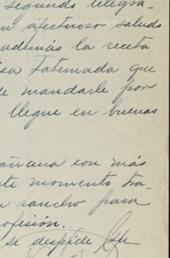 segundo telegra-
n afectuoso saludo
además la receta
isa Tatemada que
e mandarle por
llegue en buenas
añana con más
te momento tra-
n rancho para
ofesión.
se despide